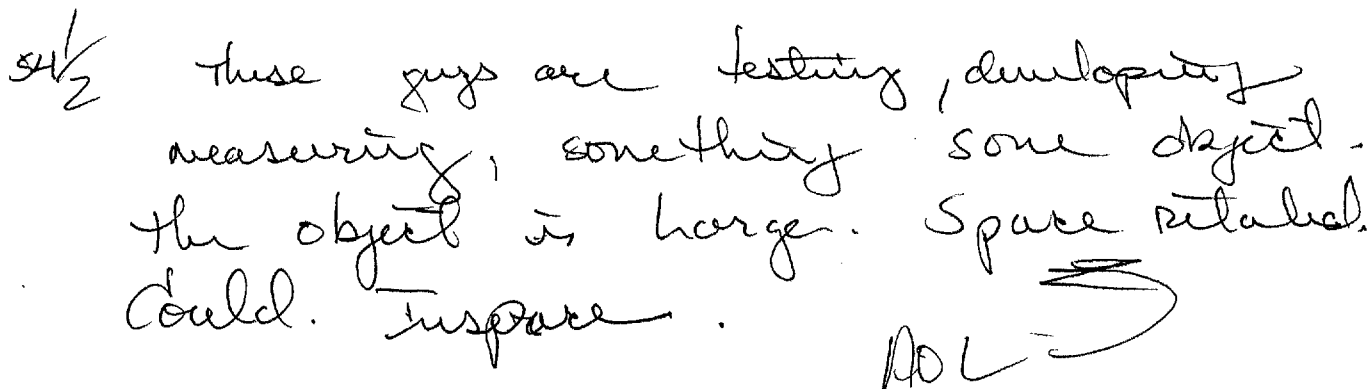 54 1/2 These guys are testing, developing
measuring, something some object.
The object is large. Space related.
Could. Inspace.
AOL